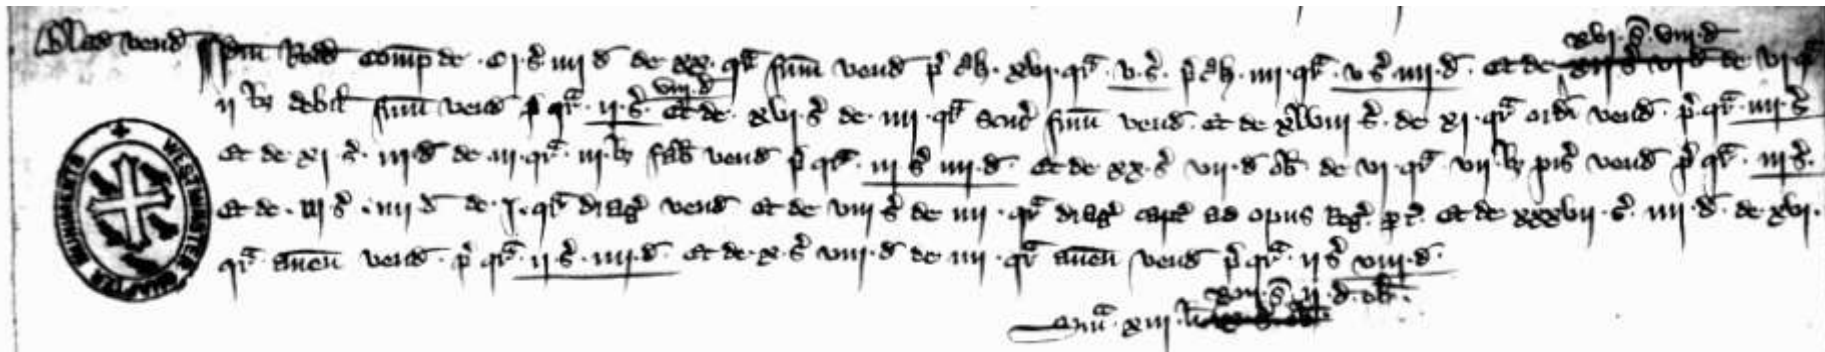 Blad vend Idm Redd Comp de . Cj . s . iiij d de xx . qr frum vend p'c' h . xvj . qr . v . s . p'c' h . iiij . qr . v s . iiij . d . Et de xij s vj d xvj . s . viij . d de vj qr
ij bz debil frum vend p' qr . ij . s . viij . d Et de . xvj s de . iiij . qr frum vend . Et de xlviij s . de xj . qr ordi vend . p' qr . iiij . s
Et de xj . s . iij . d de iij . qr . iij . bz fab vend p' qr . iij s iiij . d . Et de xx . s vij . d ob . de vj . qr vij . bz pis vend p' qr . iij . s .
Et de . iij s . iiij d de . j . qr drag vend Et de viij s de iiij . qr drag capt ad opus Reg . Et de xxxvij . s . iiij . d . de xvj .
qr . auen vend . p' qr . ij . s . iiij . d . Et de . x . s viij . d de iiij . qr auen vend p' qr . ij s viij . d .
xvij . s . ij . d . ob .
Sma . xiij . li
WESTMINSTER CHAPTER MUNIMENTS